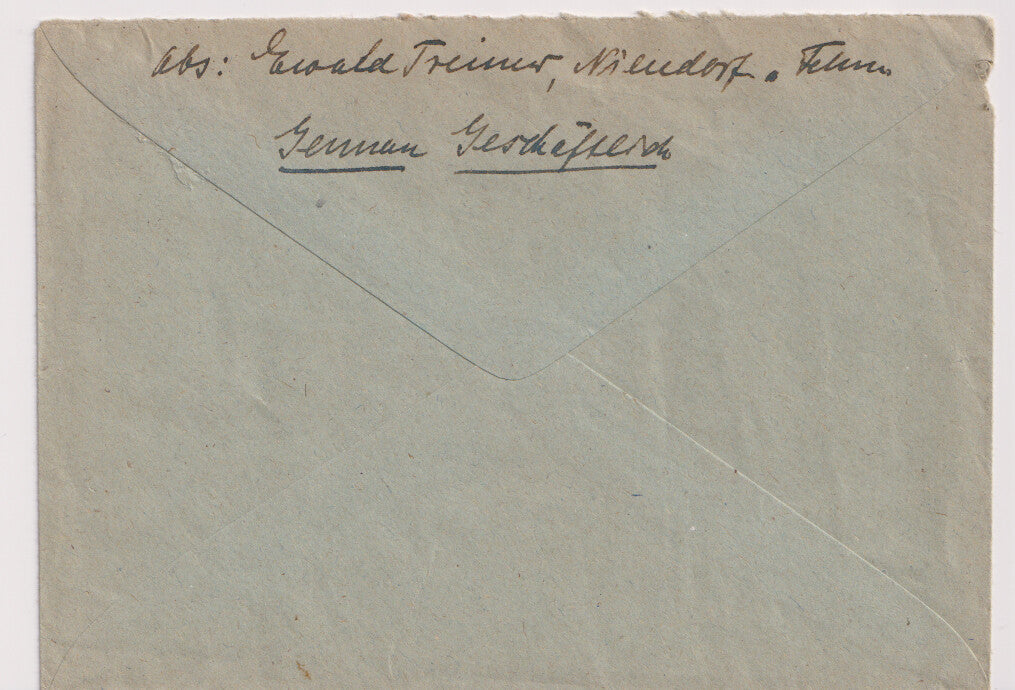 Abs: Ewald Treimer, Niendorf a. Fehm.
German Geschäftlich